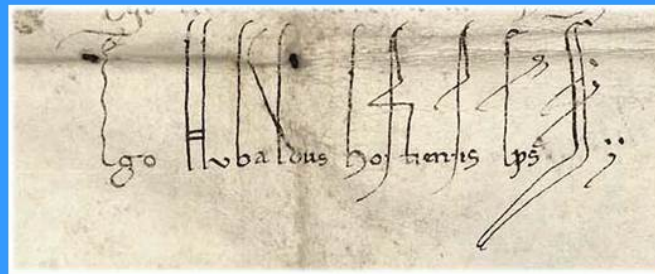 Ego Hubaldus hostiensis eps